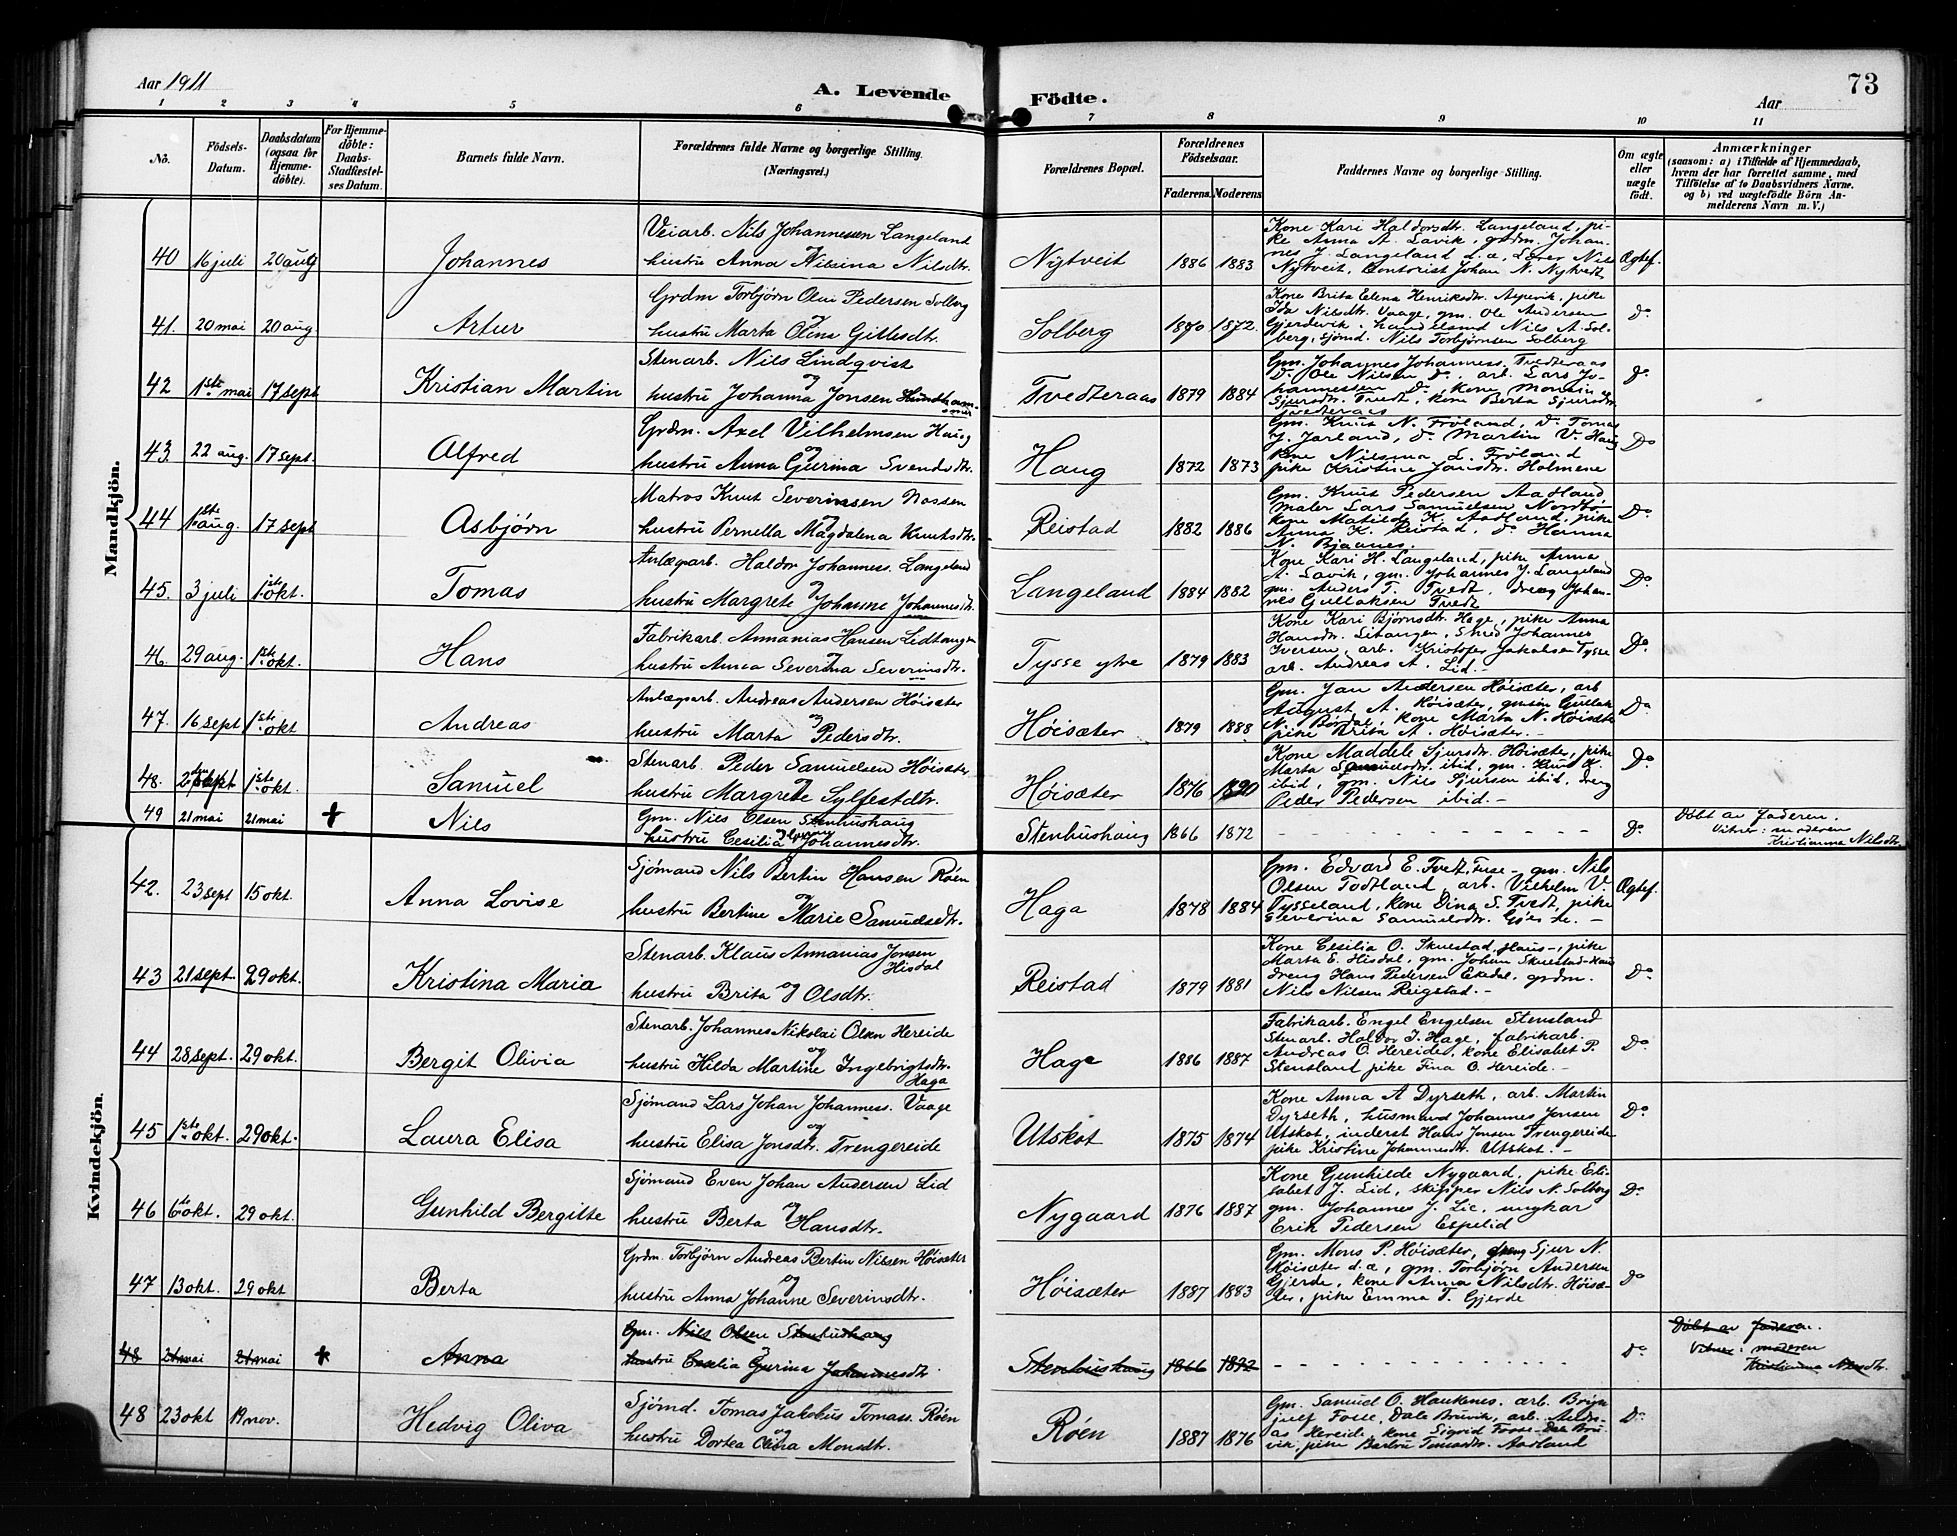 Aar 1911
A. Levende Födte.
73
Aar
1 2 3 4 5 6 7 8 9 10 11
No.
Födsels-Datum.
Daabsdatum (ogsaa for Hjemme-döbte).
For Hjemme-döbte: Daabs-Stadfæstel-ses Datum.
Barnets fulde Navn.
Forældrenes fulde Navne og borgerlige Stilling. (Næringsvei.)
Forældrenes Bopæl.
Forældrenes Födselsaar.
Faderens. Moderens.
Faddernes Navne og borgerlige Stilling.
Om ægte eller uægte födt.
Anmærkninger
(saasom: a) i Tilfælde af Hjemmedaab,
hvem der har forrettet samme, med
Tilföielse af to Daabsvidners Navne.
og b) ved uægtefödte Börn An-
melderens Navn m. V.)
Mandkjön.
40 16 juli 20 aug Johannes
Veiarb. Nils Johannessen Langeland
og
hustru Anna Nilsina Nilsdtr.
Nytveit 1886 1883
Kone Kari Haldorsdtr. Langeland, pi-
ke Anna A. Lavik, grdm. Johan-
nes J. Langeland d.æ, Lærer Nils
Nytveit, Contorist Johan N. Nytvedt
Ægtef.
41. 20 mai 20 aug Artur
Grdm Torbjørn Olai Pedersen Solberg
og
hustru Marta Olina Gitlesdtr.
Solberg 1870 1872.
Kone Brita Elena Henriksdtr. Aspevik, pike
Ida Nilsdtr. Vaage, gm. Ole Andersen
Gjerdevik, handelsmd Nils A. Sol-
berg, sjömd. Nils Torbjørnsen Solberg
Do
42 1ste mai 17 sept Kristian Martin
Stenarb. Nils Lindqvist
og
hustru Johanna Jonsen
Tvedteraas 1879 1884
Gm. Johannes Johanness. Tvedteraas
Do Ole Nilsen Do, arb. Lars Jo-
hannessen Do, kone Monsine
Sjursdtr. Tvedt, kone Berta Sjursdtr
Tvedteraas
Do
43. 22 aug. 17 sept. Alfred
Grdm. Axel Vilhelmsen Haug
og
hustru Anna Gurina Svendsdtr.
Haug 1872 1873
Gm. Knut N. Fröland, Do Tomas
J. Jarland, Do Martin V. Haug
Kone Nilsina L. Fröland
pike Kristine Jansdtr. Holmene
Do
44 1ste aug. 17 sept Asbjørn
Matros Knut Severinsen Nossen
og
hustru Pernella Magdalena Knutsdtr.
Reistad 1882 1886
Gm. Knut Pedersen Aadland
Maler Lars Samuelsen Nordbö
Kone Matilde K. Aadland, pike
Anna K. Reistad, Do Hanna
N. Bjaanes.
Do
45. 3 juli 1ste okt. Tomas
Anlægsarb. Haldor Johanness. Langeland
og
hustru Margrete Johanne Johannesdtr.
Langeland 1884 1882
Kone Kari H. Langeland, pike Anna
A. Lavik, gm. Johannes J. Langeland
gm. Anders T. Tvedt, dreng Johan-
nes Gullaksen Tvedt
Do
46. 29 aug. 1ste okt. Hans
Fabrikarb. Annanias Hansen Lidtangen
og
hustru Anna Severina Severinsdtr.
Tysse ytre 1879 1883
Kone Kari Bjørnsdtr. Hage, pike Anna
Hansdtr. Litangen, Smed Johannes
Iversen, arb. Kristofer Jakobsen Tysse
arb. Andreas A. Lid.-
Do
47. 16 sept 1ste okt Andreas
Anlægsarb. Andreas Andersen Höisæter
og
hustru Marta Pedersdtr.
Höisæter 1879 1888
Gm. Jan Andersen Höisæter, arb
August A. Höisæter, gmsön Gullak
N. Børdal, kone Marta N. Höisæte
pike Brita A. Höisæter.-
Do
48. sept 1ste okt. Samuel
Stenarb. Peder Samuelsen Höisæter
og
hustru Margrete Sylfestdtr.
Höisæter 1876
Kone Maddele Sjursdtr. Höisæter, pike
Marta Samuelsdtr. ibid, gm. Knut K.
ibid, gm. Nils Sjursen ibid, dreng
Peder Pedersen ibid.-
Do
49 21 mai 21 mai + Nils
Gm. Nils Olsen Stenhushaug
og
hustru Cesilia Johannesdtr.
Stenhushaug 1866 1872
Do
Döbt av faderen.
Vitner: moderen
Kristianna Nilsdtr.
Kvindekjön.
42. 23 sept 15 okt. Anna Lovise
Sjømand Nils Bertin Hansen Röen
og
hustru Bertine Marie Samuelsdtr.
Haga 1878 1884
Gm. Edvard E. Tvedt, Fuse-, gm. Nils
Olsen Todtland, arb. Vilhelm V.
Tysseland, kone Dina S. Tvedt, pike
Severina Samuelsdtr.
Ægtef.
43 21 sept. 29 okt. Kristina Maria
Stenarb. Klaus Annanias Jonsen
Hisdal
og
hustru Brita Olsdtr.
Reistad 1879 1881
Kone Cesilia O. Skuestad, Haus-, pike
Marta E. Hisdal, gm. Johan Skuestad-Haus
dreng Hans Pedersen Ekedal, grdm.
Nils Nilsen Reigstad.-
Do
44 28 sept. 29 okt. Bergit Olivia
Stenarb. Johannes Nikolai Olsen Hereide
og
hustru Hilda Martine Ingebrigtsdtr.
Haga
Hage 1886 1887
Fabrikarb. Engel Engelsen Stensland
Stenarb. Haldor J. Hage, fabrikarb.
Andreas O. Hereide, kone Elisabet P.
Stensland pike Fina O. Hereide.-
Do
45 1ste okt. 29 okt. Laura Elisa
Sjømand Lars Johan Johanness. Vaage
og
hustru Elisa Jonsdtr. Trengereide
Utskot 1875 1874
Kone Anna A Dyrseth, arb. Martin
Dyrseth, husmand Johannes Jonsen
Utskot, inderst Hans Jonsen Trengereide
pike Kristine Johannesdtr. Utskot.-
Do
46 6te okt. 29 okt. Gunhild Bergitte
Sjømand Even Johan Andersen Lid
og
hustru Berta Hansdtr.
Nygaard 1876 1887
Kone Gunhilde Nygaard, pike Eli-
sabet J. Lid, skipper Nils N. Solberg
gm. Johannes J. Lie, ungkar
Erik Pedersen Espelid
Do
47 13 okt. 29 okt Berta
Grdm. Torbjørn Andreas Bertin Nilsen Höisæter
og
hustru Anna Johanne Severinsdtr.
Höisæter 1887 1883
Gm. Mons P. Höisæter, dreng Sjur N.
Höisæter d.æ, gm. Torbjørn Andersen
Gjerde, kone Anna Nilsdtr. Höisæ-
ter, pike Emma T. Gjerde
Do
48 21 mai 21 mai + Anna
Gm. Nils Olsen Stenhushaug
og
hustru Cesilia Gurina Johannesdtr.
Stenhushaug 1866 1872
Do
Döbt av faderen.
Vitner: moderen
Kristianna Nilsdtr.
48 23 okt 19 nov. Hedvig Oliva
Sjømd. Tomas Jakobus Tomass. Röen
og
hustru Dortea Olina Monsdtr.
Röen 1887 1876
Gm. Samuel O. Haukenes, arb. Bryn-
julf Fosse, Dale Bruvik, arb. Andre-
as Hereide, kone Sigrid Fosse-Dale Bru-
vik, pike Bertine Tomasdtr. Aadland
Do